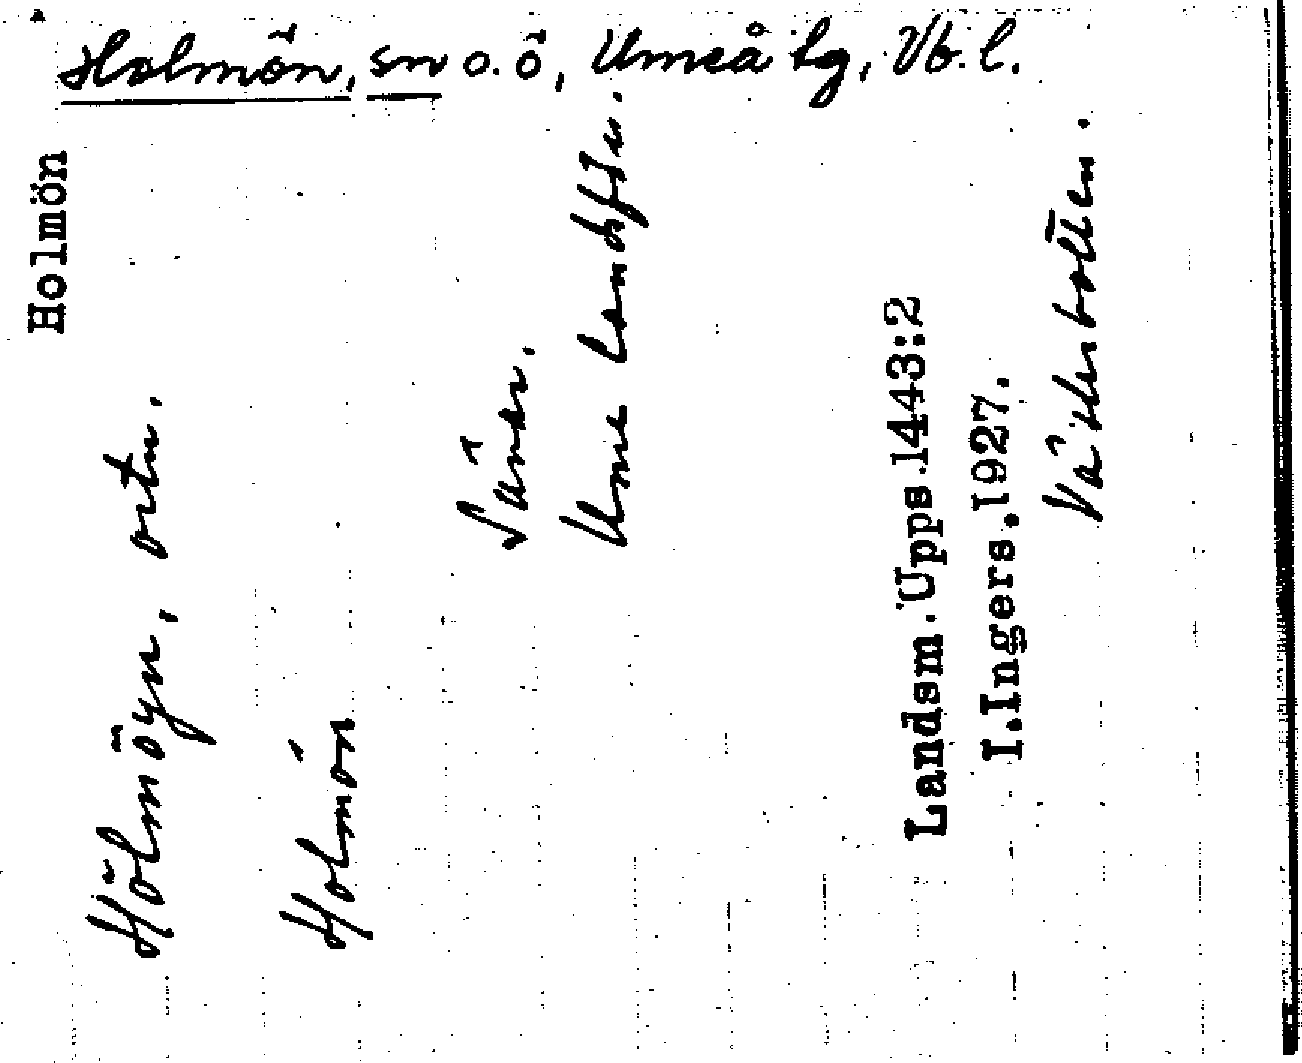 Holmön, sn o. ö, Umeå lg, Vb. l.
Holmön
Hölmöyn, ortn.
Holmön
Sävar.
Ume landsfs.
Landsm. Upps.1443:2
I.Ingers.1927.
Västerbotten.